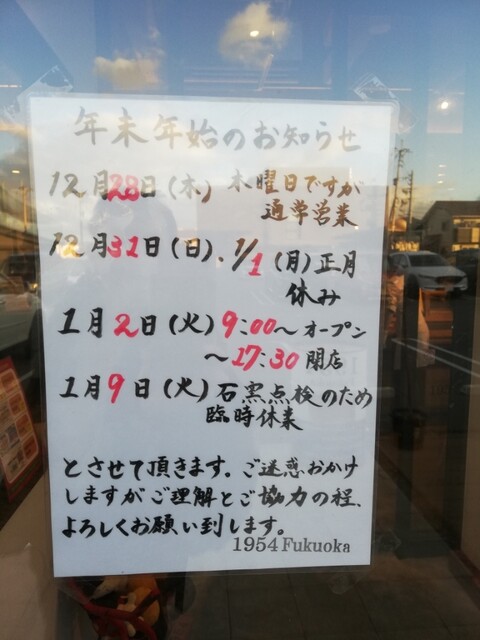 年末年始のお知らせ
12月28日(木) 木曜日ですが
通学営業
12月31日(日).1/1(月)正月
休み
1月2日(火)9:00～オープン
～17:30閉店
1月9日(火)石窯点検のため
臨時休業
とさせて頂きます。ご迷惑おかけ
しますがご理解とご協力の程、
よろしくお願い到します。
1954 Fukuoka